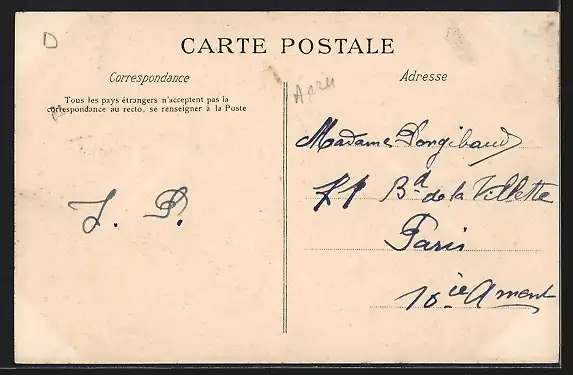 D
CARTE POSTALE
Correspondance
Adresse
Tous les pays étrangers n'acceptent pas la
correspondance au recto, se renseigner à la Poste
Madame Longibaud
Bd de la Villette
Paris
10ie
J. P.